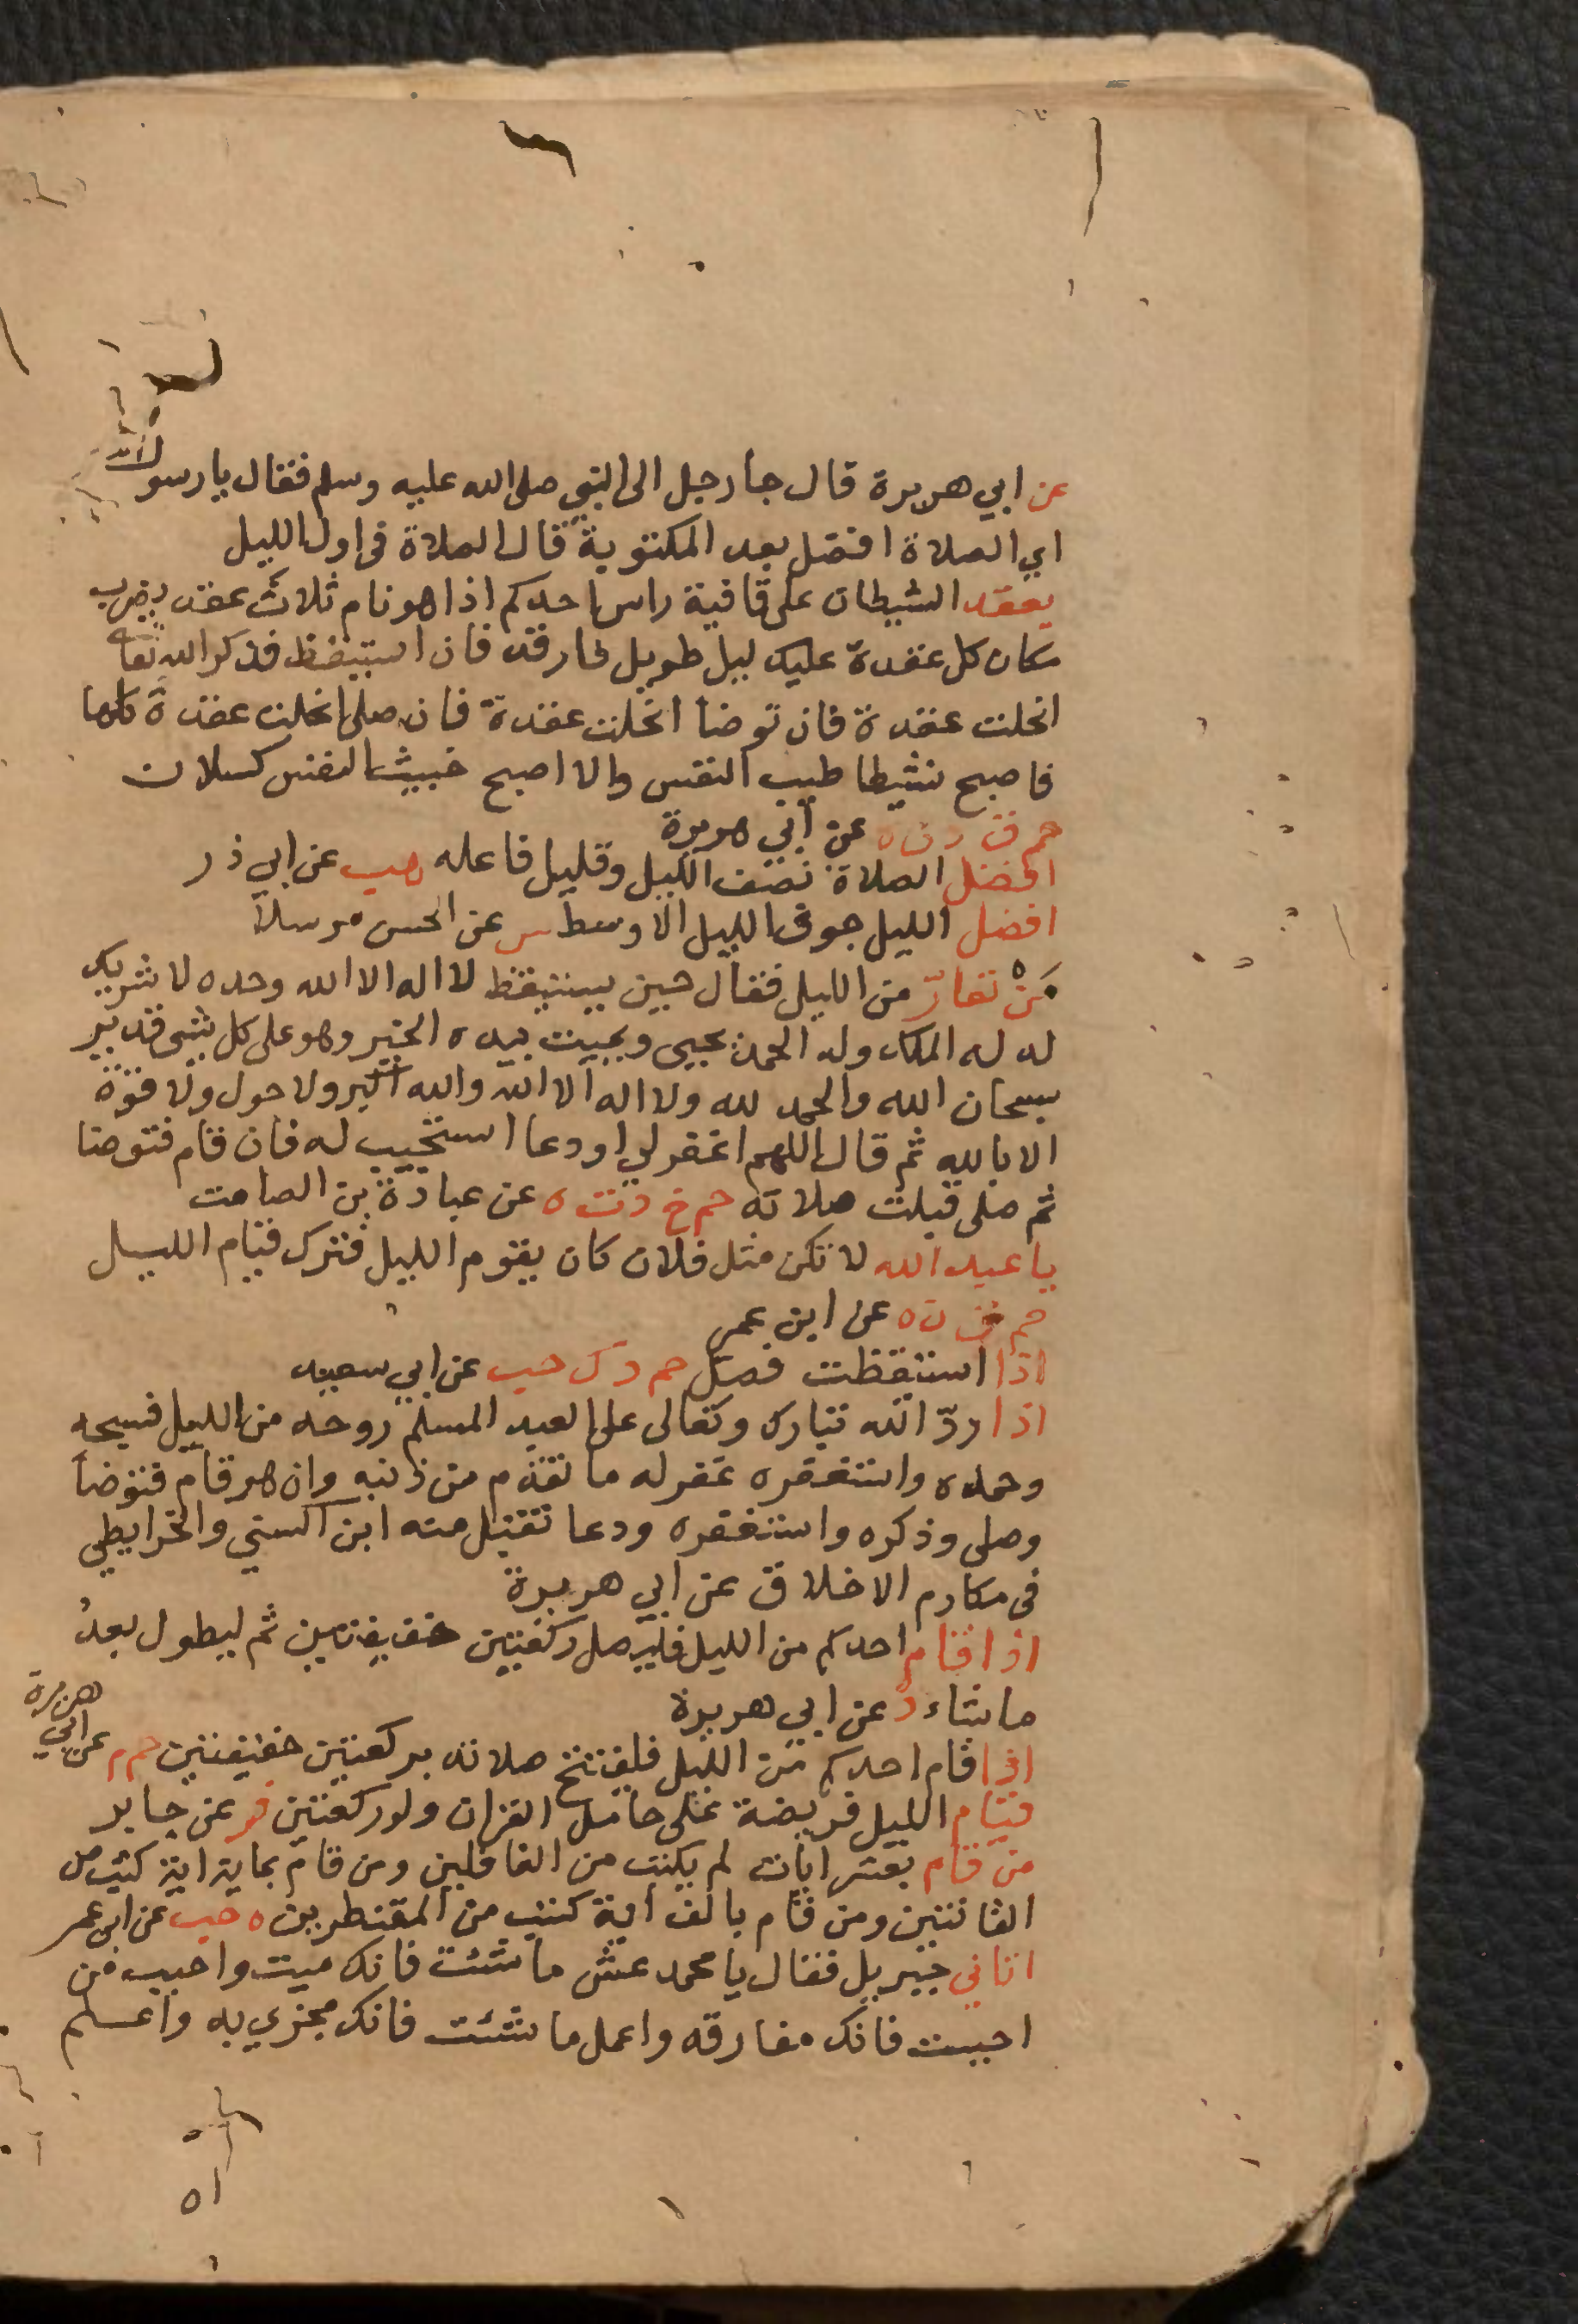 عن ابي هريرة قال جا رجل الى النبي صلى الله عليه وسلم فقال يا رسول الله
اي الصلاة افضل بعد المكتوبة قال الصلاة في اول الليل
يعقد الشيطان على قافية راس احدكم اذا هو نام ثلاث عقد يضرب
مكان كل عقدة عليك ليل طويل فارقد فان استيقظ فذكر الله تعا
انحلت عقدة فان توضا انحلت عقدة فان صلى انحلت عقدة كلها
فاصبح نشيطا طيب النفس والا اصبح خبيث النفس كسلان
حم ق د ن ه عن ابي هريرة
افضل الصلاة نصف الليل وقليل فاعله هب عن ابي ذر
افضل الليل جوف الليل الاوسط س عن الحسن مرسلا
مَنْ تعارّ من الليل فقال حين يستيقظ لا اله الا الله وحده لا شريك
له له الملك وله الحمد يحيى ويميت بيده الخير وهو على كل شى قدير
سبحان الله والحمد لله ولا اله الا الله والله اكبر ولا حول ولا قوة
الا بالله ثم قال اللهم اغفر لي او دعا استجيب له فان قام فتوضا
ثم صلى قبلت صلاته حم خ د ت ه عن عبادة بن الصامت
يا عبد الله لا تكن مثل فلان كان يقوم الليل فترك قيام الليل
حم ق ن ه عن ابن عمر
اذا استيقظت فصل حم د ك حب عن ابي سعيد
اذا ردّ الله تبارك وتعالى على العبد المسلم روحه من الليل فسبحه
وحمده واستغفره غفر له ما تقدم من ذنبه وان هو قام فتوضأ
وصلى وذكره واستغفره ودعا تقبل منه ابن السني والخرايطي
في مكارم الاخلاق عن ابي هريرة
اذا قام احدكم من الليل فليصل ركعتين خفيفتين ثم ليطول بعدُ
ما شاء د عن ابي هريرة
اذا قام احدكم من الليل فليفتتح صلاته بركعتين خفيفتين حم م عن ابي هريرة
قيام الليل فريضة على حامل القران ولو ركعتين فر عن جابر
من قام بعشر ايات لم يكتب من الغافلين ومن قام بماية اية كتب من
القانتين ومن قام بالف اية كتب من المقنطرين د حب عن ابن عمر
اتاني جبريل فقال يا محمد عش ما شئت فانك ميت واحبب من
احببت فانك مفارقه واعمل ما شئت فانك مجزي به واعلم